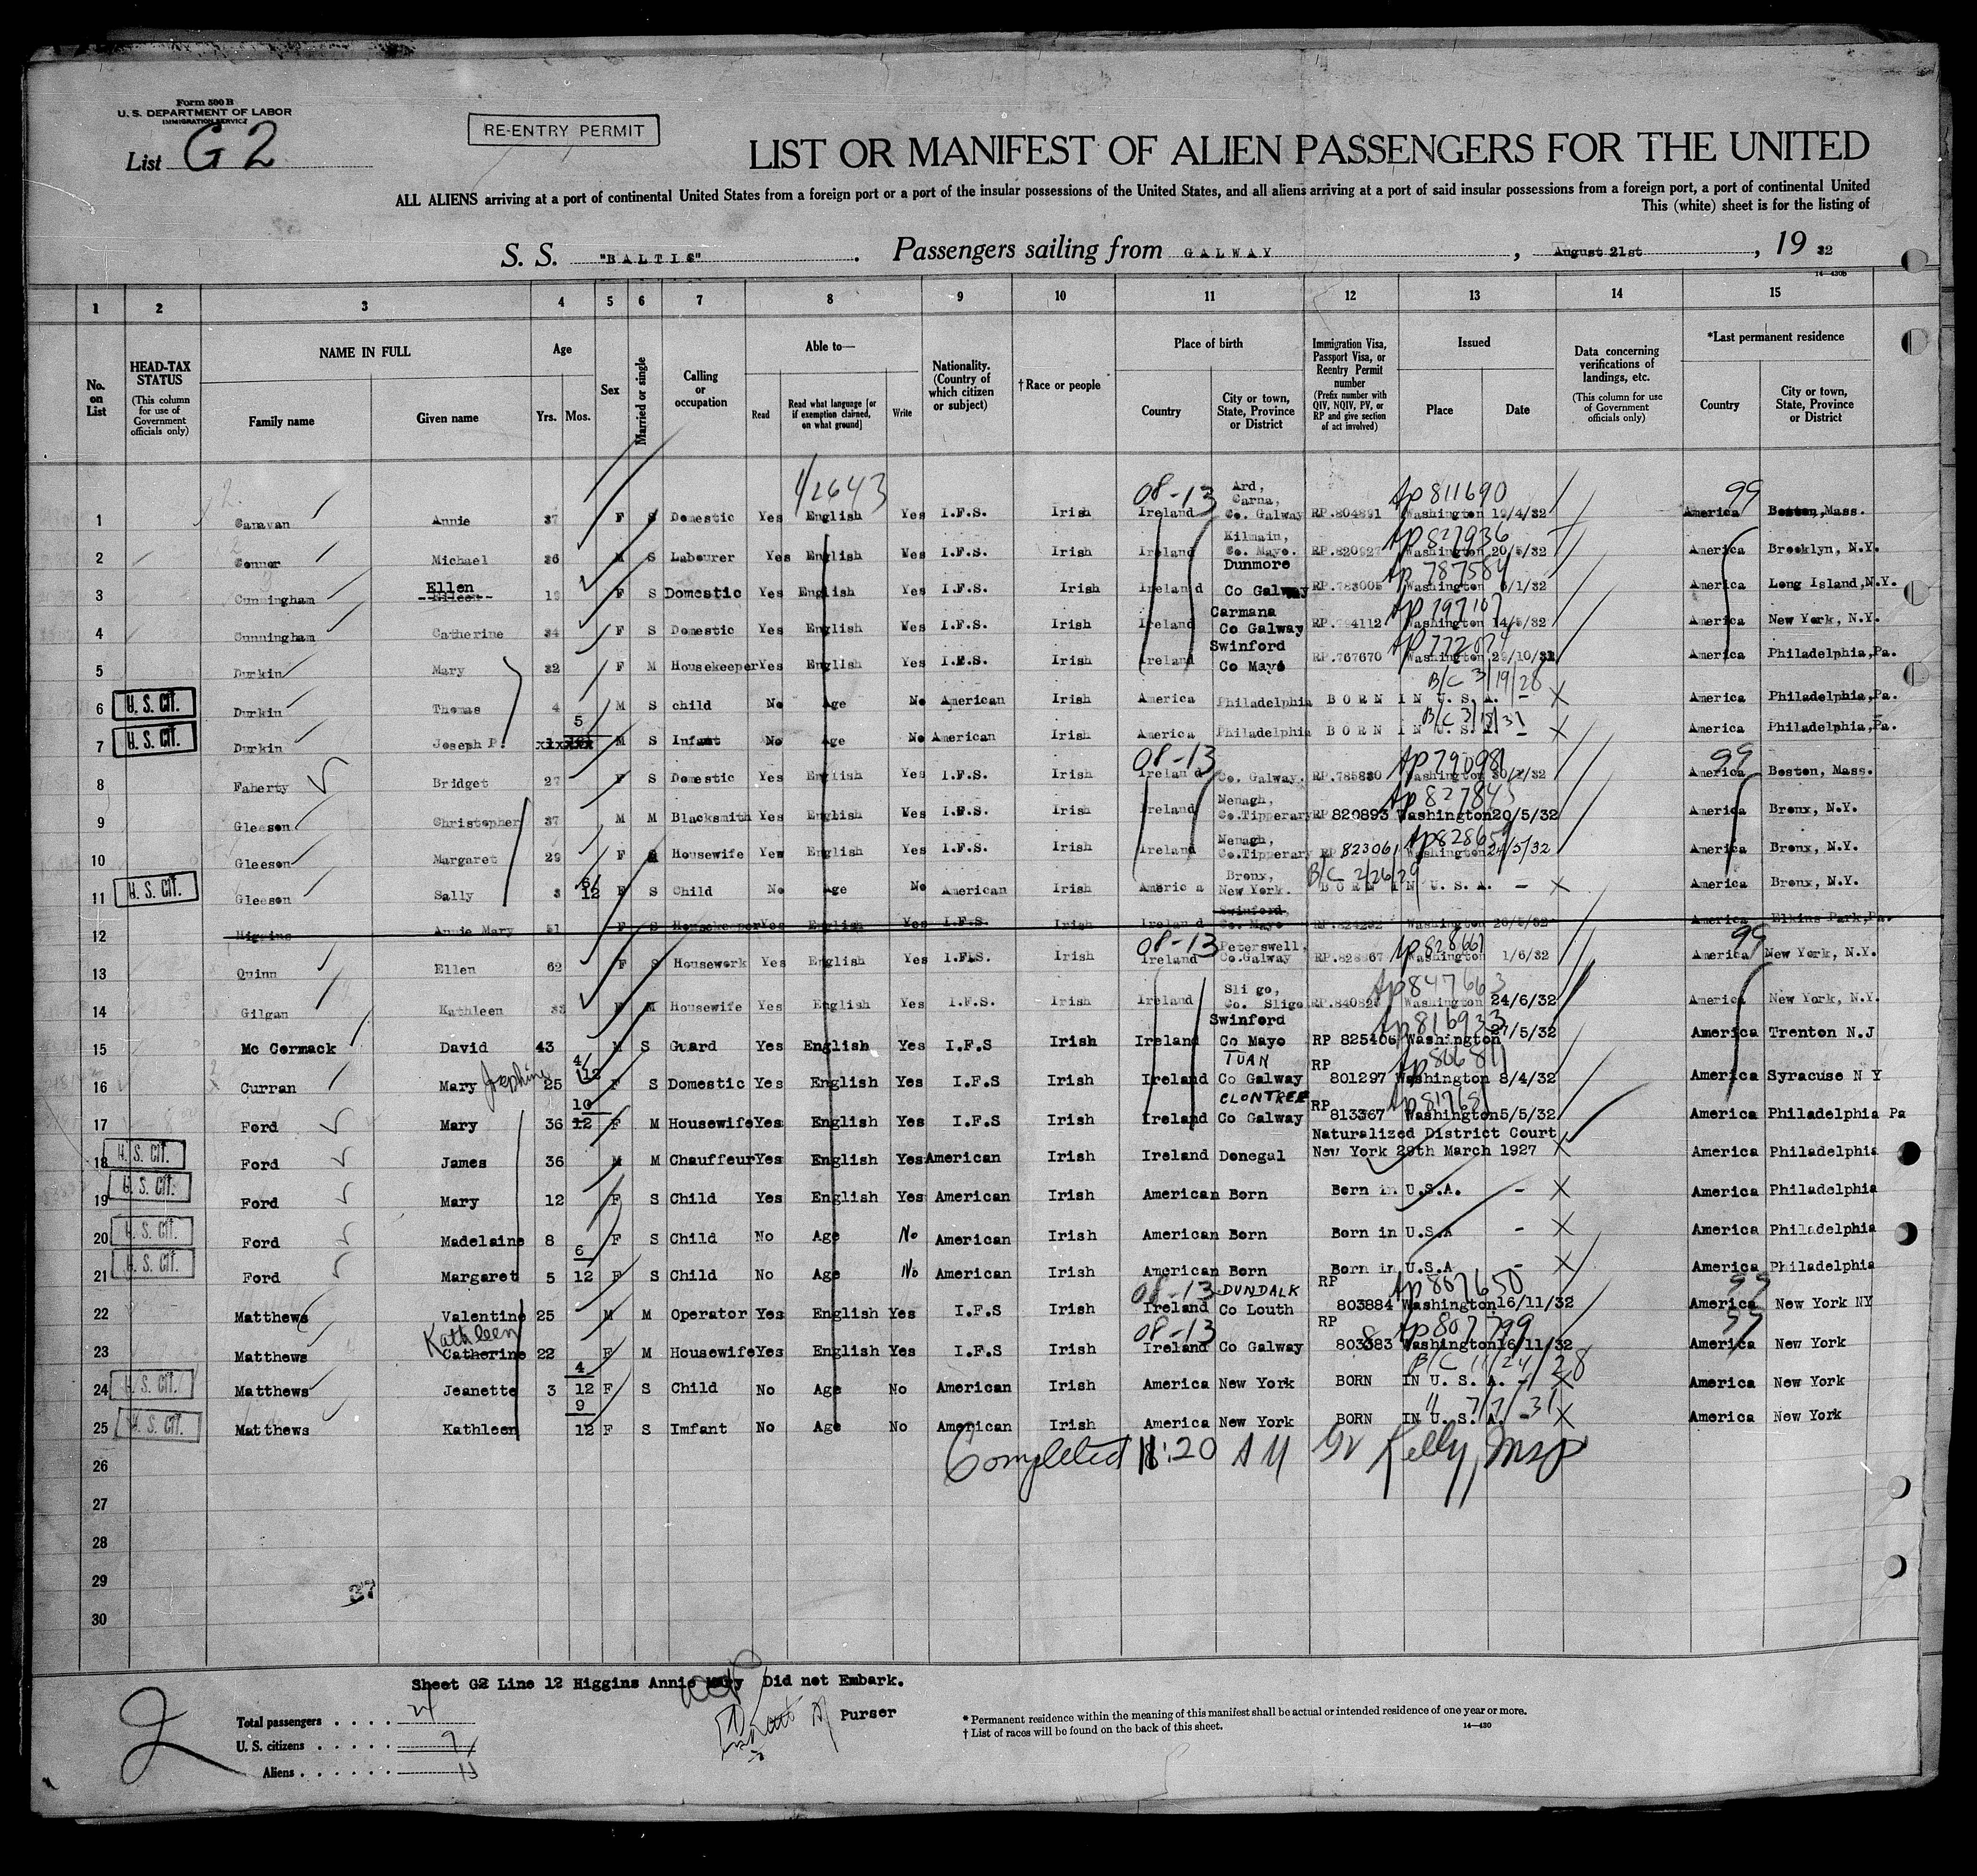 Form 500 B
U. S. DEPARTMENT OF LABOR
IMMIGRATION SERVICE
List G2
RE-ENTRY PERMIT
LIST OR MANIFEST OF ALIEN PASSENGERS FOR THE UNITED
ALL ALIENS arriving at a port of continental United States from a foreign port or a port of the insular possessions of the United States, and all aliens arriving at a port of said insular possessions from a foreign port, a port of continental United
This (white) sheet is for the listing of
S. S. "BALTIC". Passengers sailing from GALWAY, August 21st, 19 32
14—430B
1 2 3 4 5 6 7 8 9 10 11 12 13 14 15
No. on List
HEAD-TAX STATUS (This column for use of Government officials only)
NAME IN FULL Family name Given name
Age Yrs. Mos.
Sex
Married or single
Calling or occupation
Able to— Read Read what language [or if exemption claimed, on what ground] Write
Nationality. (Country of which citizen or subject)
† Race or people
Place of birth Country City or town, State, Province or District
Immigration Visa, Passport Visa, or Reentry Permit number (Prefix number with QIV, NQIV, PV, or RP and give section of act involved)
Issued Place Date
Data concerning verifications of landings, etc. (This column for use of Government officials only)
*Last permanent residence Country City or town, State, Province or District
1/2643 08-13 Ap 811690 99
1 Canavan Annie 37 F S Domestic Yes English Yes I.F.S. Irish Ireland Ard, Carna, Co. Galway RP.804891 Washington 19/4/32 America Boston, Mass.
Ap 827936
2 Connor Michael 36 M S Labourer Yes English Yes I.F.S. Irish Ireland Kilmain, Co. Mayo. Washington 20/5/32 America Brooklyn, N.Y.
Ap 787584
3 Cunningham Ellen Eileen 19 F S Domestic Yes English Yes I.F.S. Irish Ireland Dunmore Co Galway RP.783005 Washington 6/1/32 America Long Island, N.Y.
Ap 797107
4 Cunningham Catherine 34 F S Domestic Yes English Yes I.F.S. Irish Ireland Carmana Co Galway RP.794112 Washington America New York, N.Y.
Ap 772074
5 Durkin Mary 32 F M Housekeeper Yes English Yes I.F.S. Irish Ireland Swinford Co Mayo RP.767670 Washington 29/10/31 America Philadelphia, Pa.
B/C 3/19/28
6 U. S. CIT. Durkin Thomas 4 M S child No Age No American Irish America Philadelphia BORN IN U. S. A. - X America Philadelphia, Pa.
7 U. S. CIT. Durkin Joseph P. 5 M S Infant No Age No American Irish America Philadelphia BORN IN U. S. A. - X America Philadelphia, Pa.
08-13 Ap 790981 99
8 Faherty Bridget 27 F S Domestic Yes English Yes I.F.S. Irish Ireland Co. Galway. RP.785830 Washington America Boston, Mass.
Ap 827843
9 Gleeson Christopher 37 M M Blacksmith Yes English Yes I.F.S. Irish Ireland Nenagh, Co. Tipperary RP 820893 Washington 20/5/32 America Bronx, N.Y.
10 Gleeson Margaret 29 F Housewife Yes English Yes I.F.S. Irish Ireland Nenagh, Co. Tipperary RP 823061 Washington 24/5/32 America Bronx, N.Y.
B/C 2/26/29
11 U. S. CIT. Gleeson Sally 3 6/12 F S Child No Age No American Irish America Bronx, New York. BORN IN U. S. A. - X America Bronx, N.Y.
12 Higgins Annie Mary 51 F S Housekeeper Yes English Yes I.F.S. Irish Ireland Swinford, Co. Mayo RP.824292 Washington America Elkins Park, Pa.
08-13 Ap 828661 99
13 Quinn Ellen 62 F S Housework Yes English Yes I.F.S. Irish Ireland Peterswell, Co. Galway Washington 1/6/32 America New York, N.Y.
Ap 847663
14 Gilgan Kathleen 33 F M Housewife Yes English Yes I.F.S. Irish Ireland Sligo, Co. Sligo Washington 24/6/32 America New York, N.Y.
Ap 816933
15 Mc Cormack David 43 M S Guard Yes English Yes I.F.S Irish Ireland Swinford Co Mayo RP 825406 Washington 27/5/32 America Trenton N.J
Ap 806811
16 Curran Mary Josephine 25 4/12 F S Domestic Yes English Yes I.F.S Irish Ireland TUAN Co Galway RP 801297 Washington 8/4/32 America Syracuse N Y
17 Ford Mary 36 10/12 F M Housewife Yes English Yes I.F.S Irish Ireland CLONTREE Co Galway RP 813367 Washington 5/5/32 America Philadelphia Pa
18 U. S. CIT. Ford James 36 M M Chauffeur Yes English Yes American Irish Ireland Donegal Naturalized District Court New York 29th March 1927 X America Philadelphia
19 U. S. CIT. Ford Mary 12 F S Child Yes English Yes American Irish American Born Born in U.S.A. - X America Philadelphia
20 U. S. CIT. Ford Madelaine 8 F S Child No Age No American Irish American Born Born in U.S.A - X America Philadelphia
21 U. S. CIT. Ford Margaret 5 6/12 F S Child No Age No American Irish American Born Born in U.S.A - X America Philadelphia
08-13 Ap 807650 99
22 Matthews Valentine 25 M M Operator Yes English Yes I.F.S Irish Ireland DUNDALK Co Louth RP 803884 Washington 16/11/32 America New York NY
08-13 Ap 807799 99
23 Matthews Kathleen Catherine 22 F M Housewife Yes English Yes I.F.S Irish Ireland Co Galway RP 803883 Washington 16/11/32 America New York
B/C 11/24/28
24 U. S. CIT. Matthews Jeanette 3 4/12 F S Child No Age No American Irish America New York BORN IN U. S. A. - X America New York
" 7/7/31
25 U. S. CIT. Matthews Kathleen 9/12 F S Imfant No Age No American Irish America New York BORN IN U. S. A. - X America New York
26 Completed 11:20 AM Kelly, Insp
27
28
29
37
30
Sheet G2 Line 12 Higgins Annie Mary Did not Embark.
Purser
2
Total passengers . . . . 24
U. S. citizens . . . . . 9
Aliens . . . . . . 15
* Permanent residence within the meaning of this manifest shall be actual or intended residence of one year or more.
† List of races will be found on the back of this sheet. 14—430